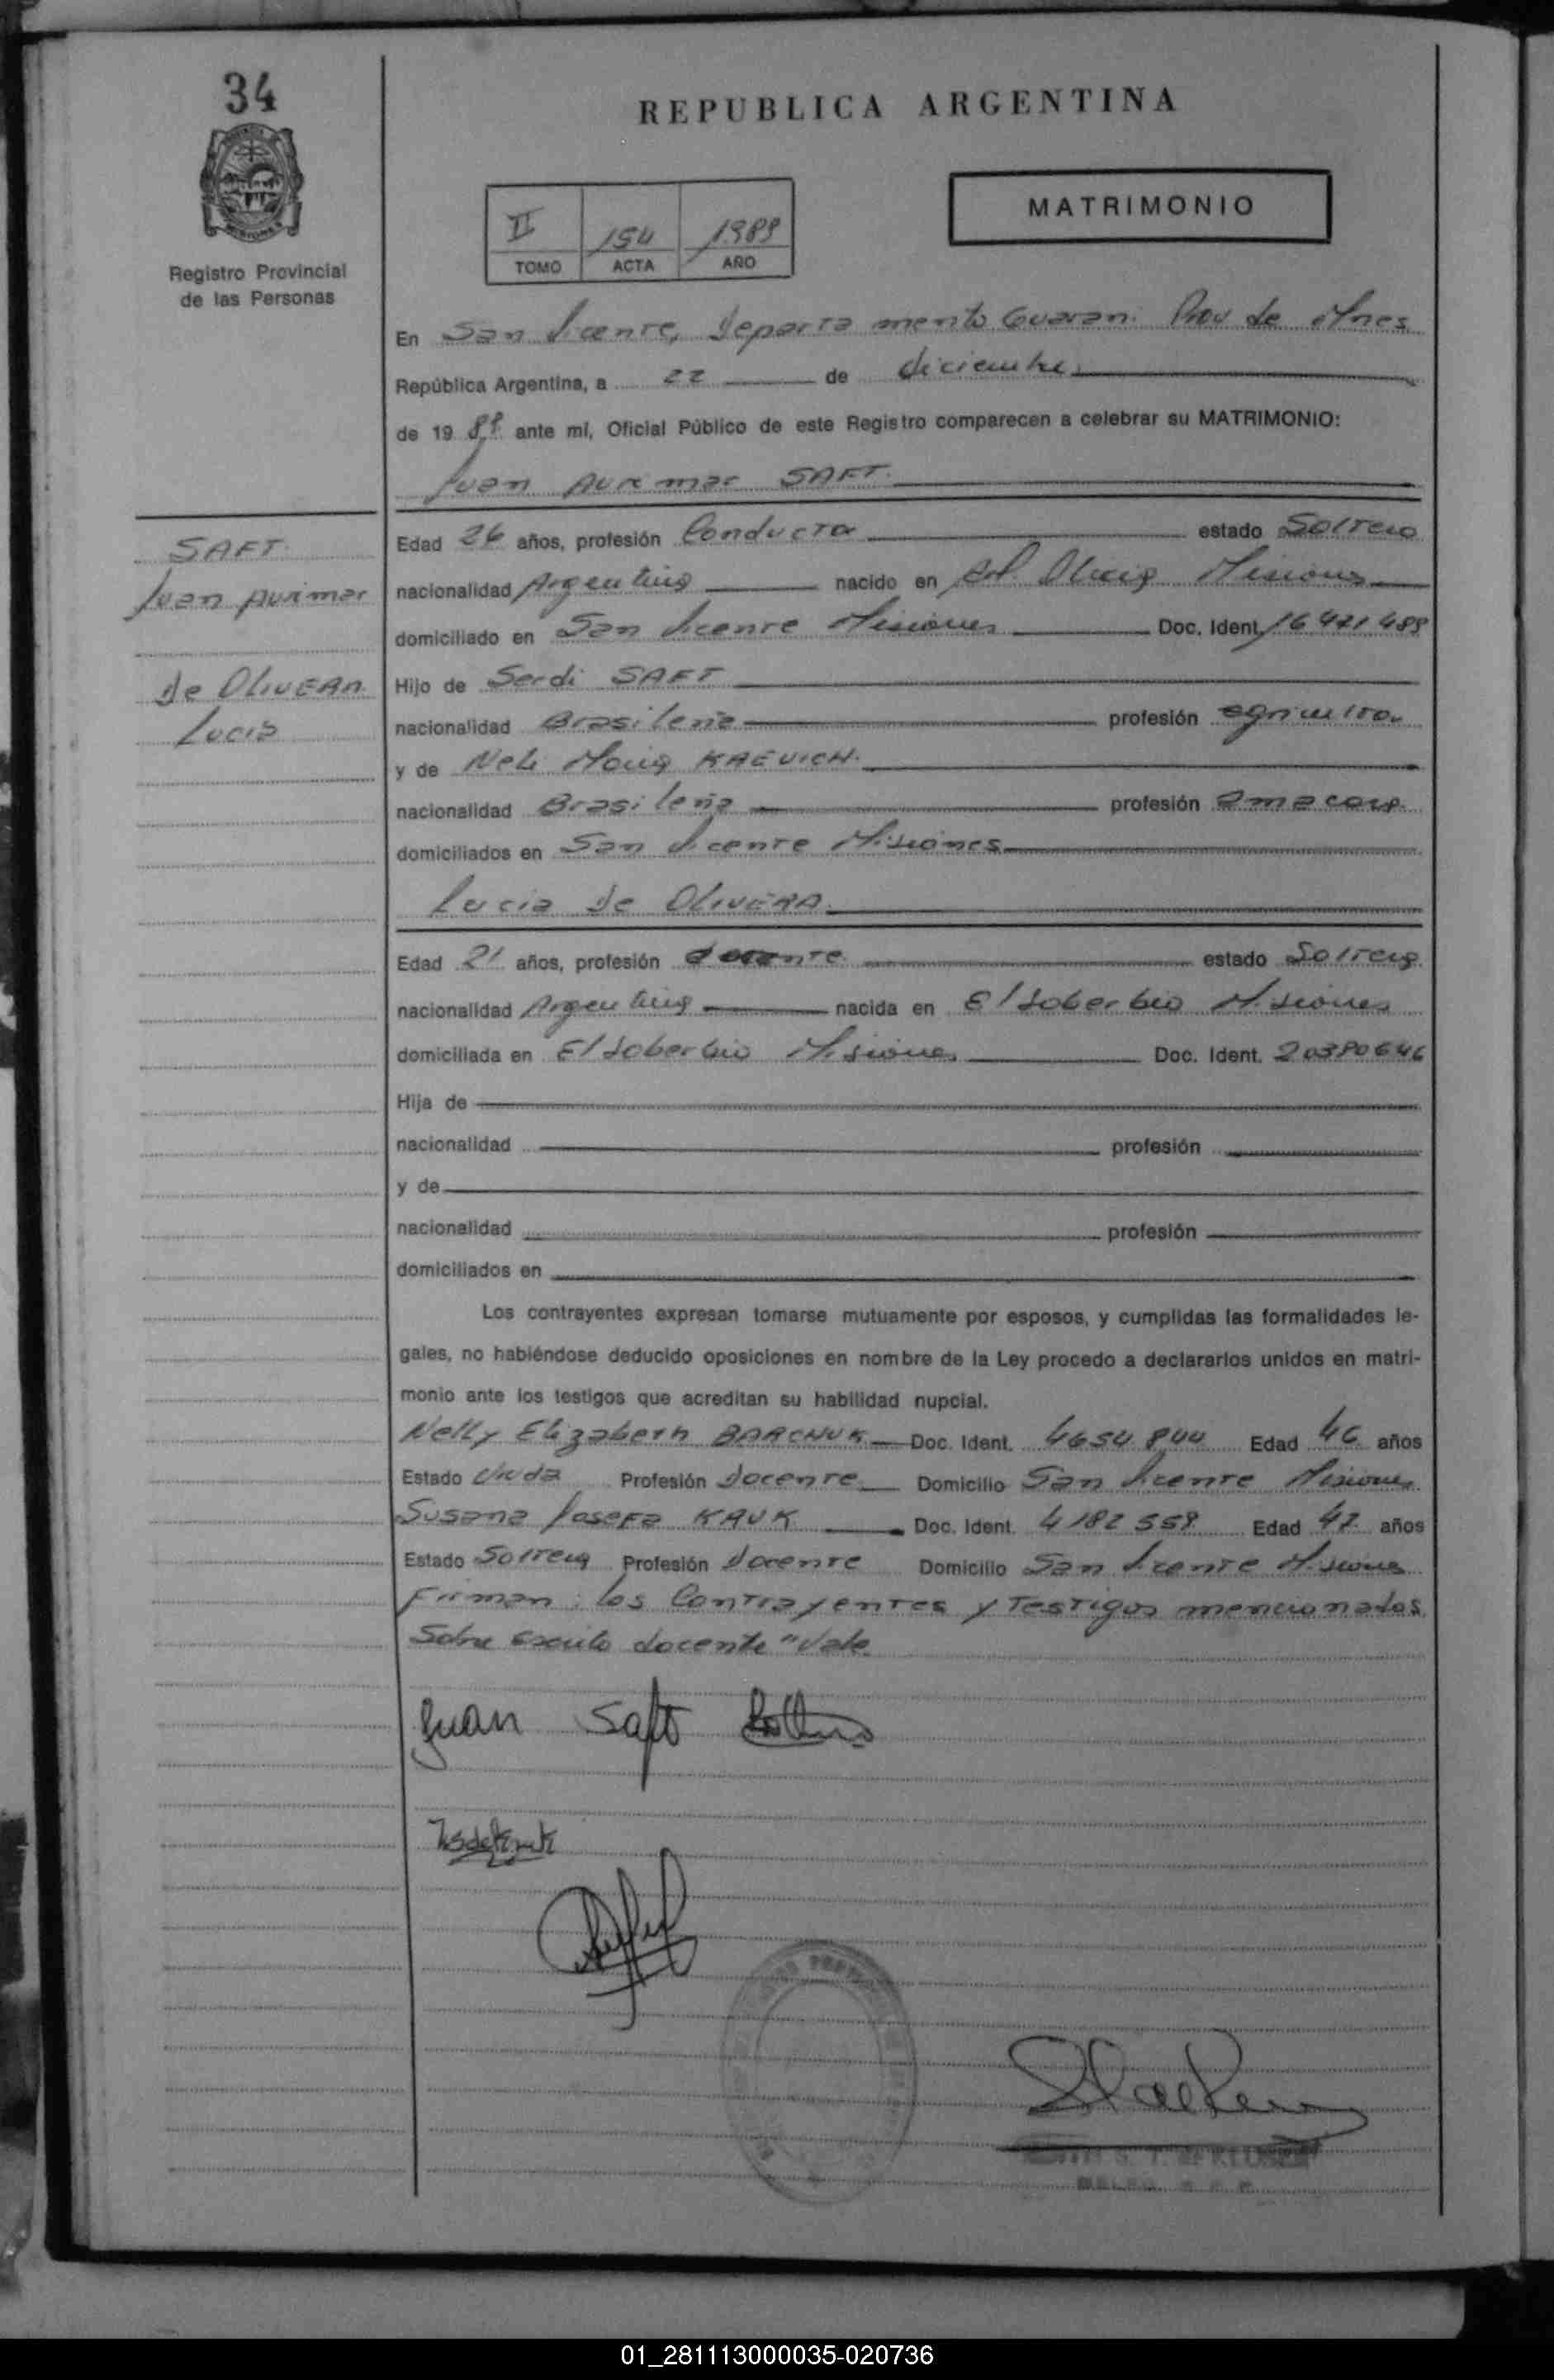 34
REPUBLICA ARGENTINA
MATRIMONIO
II 154 1989
TOMO ACTA AÑO
Registro Provincial
de las Personas
En San Vicente, Departamento Guarani Prov de Mnes
República Argentina, a 22 de diciembre
de 19 89 ante mí, Oficial Público de este Registro comparecen a celebrar su MATRIMONIO:
Juan Aurimar SAFT
SAFT
Juan Aurimar
de OLIVERA
Lucia
Edad 26 años, profesión Conductor estado Soltero
nacionalidad Argentina nacido en Misiones
domiciliado en San Vicente Misiones Doc. Ident. 16 471 489
Hijo de Serdi SAFT
nacionalidad Brasileña profesión agricultor
y de Neli KAEVICH
nacionalidad Brasileña profesión ama casa
domiciliados en San Vicente Misiones
Lucia de OLIVERA
Edad 21 años, profesión docente estado Soltera
nacionalidad Argentina nacida en El Soberbio Misiones
domiciliada en El Soberbio Misiones Doc. Ident. 20380646
Hija de
nacionalidad profesión
y de
nacionalidad profesión
domiciliados en
Los contrayentes expresan tomarse mutuamente por esposos, y cumplidas las formalidades le-
gales, no habiéndose deducido oposiciones en nombre de la Ley procedo a declararlos unidos en matri-
monio ante los testigos que acreditan su habilidad nupcial.
Nelly Elizabeth BARCHUK Doc. Ident. 4654 844 Edad 46 años
Estado Viuda Profesión docente Domicilio San Vicente Misiones
Susana Josefa KAUK Doc. Ident. 4182 559 Edad 47 años
Estado Soltera Profesión docente Domicilio San Vicente Misiones
Firman: los Contrayentes y Testigos mencionados
Sobre escrito docente "Vale
Juan Saft
01_281113000035-020736